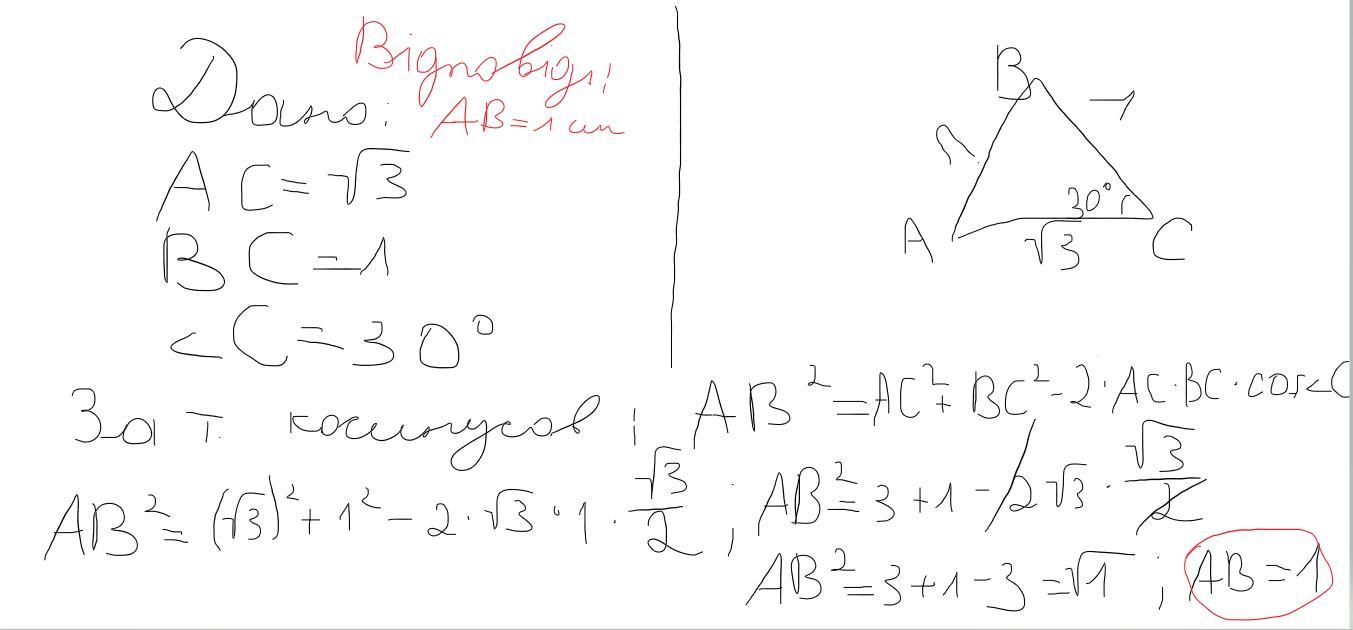 Дано:
Відповідь:
AB = 1 см
AC = √3
BC = 1
<C = 30°
B
1
?
30°
A
√3
C
За т. косинусов: AB² = AC² + BC² - 2·AC·BC·cos<C
AB² = (√3)² + 1² - 2·√3·1·√3/2; AB² = 3 + 1 - 2√3·√3/2
AB² = 3 + 1 - 3 = √1; AB = 1